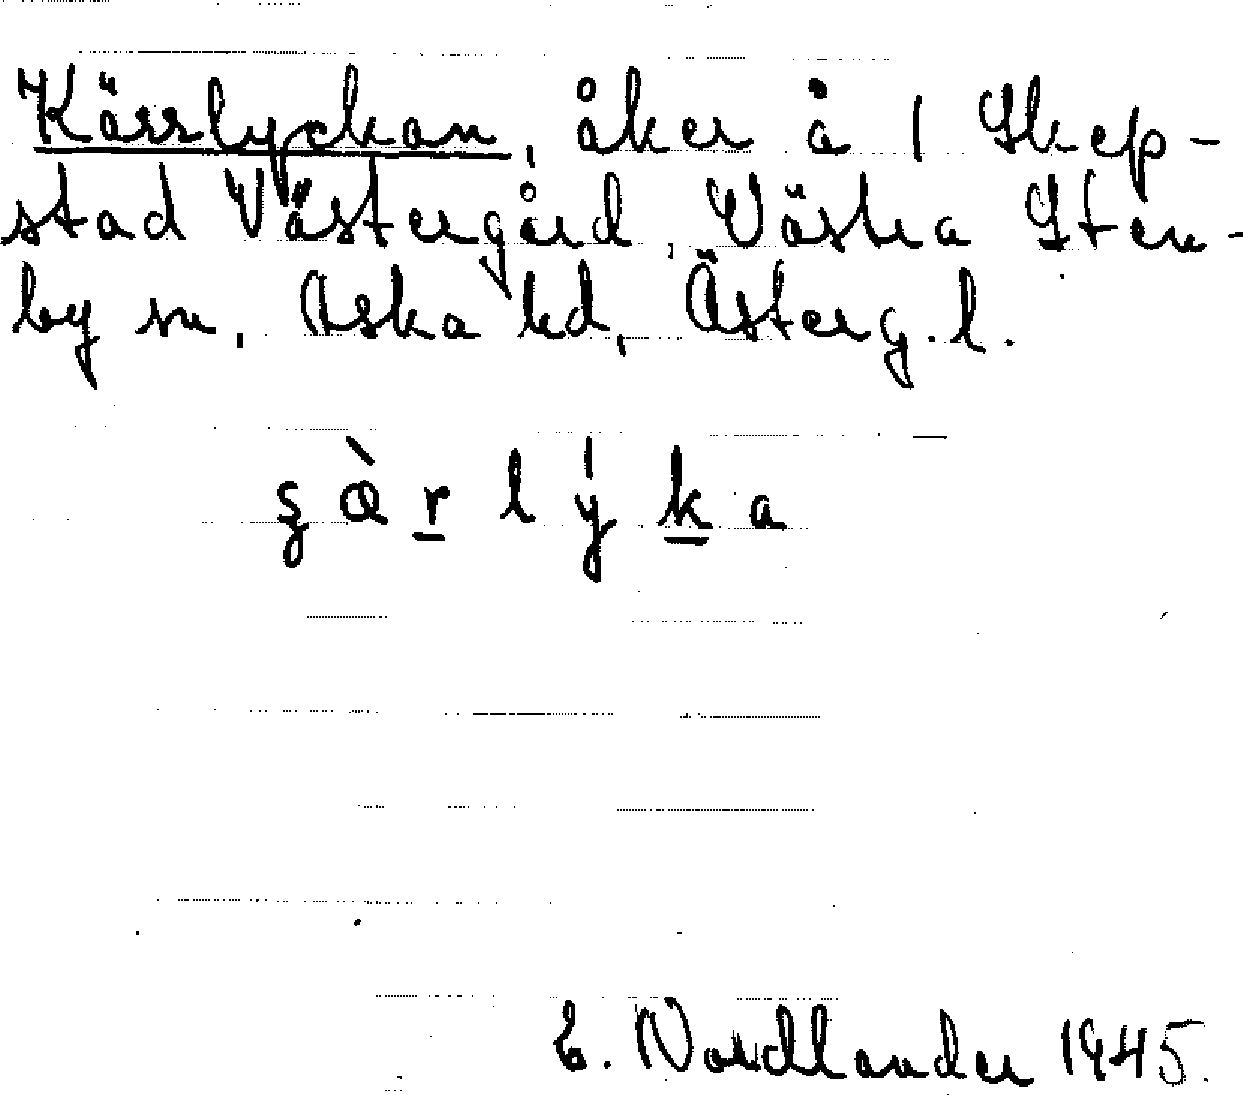 Kärrlyckan, åker å 1 Skep-
stad Västergård, Västra Sten-
by sn, Aska hd, Österg. l.
E. Nordlander 1945.